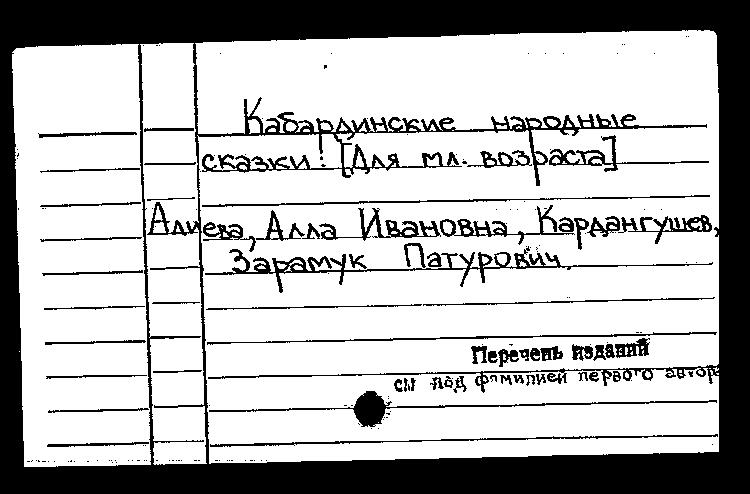 Кабардинские народные
сказки: [Для мл. возраста]
Алиева, Алла Ивановна, Кардангушев,
Зарамук Патурович.
Перечень изданий
см под фамилией первого автора